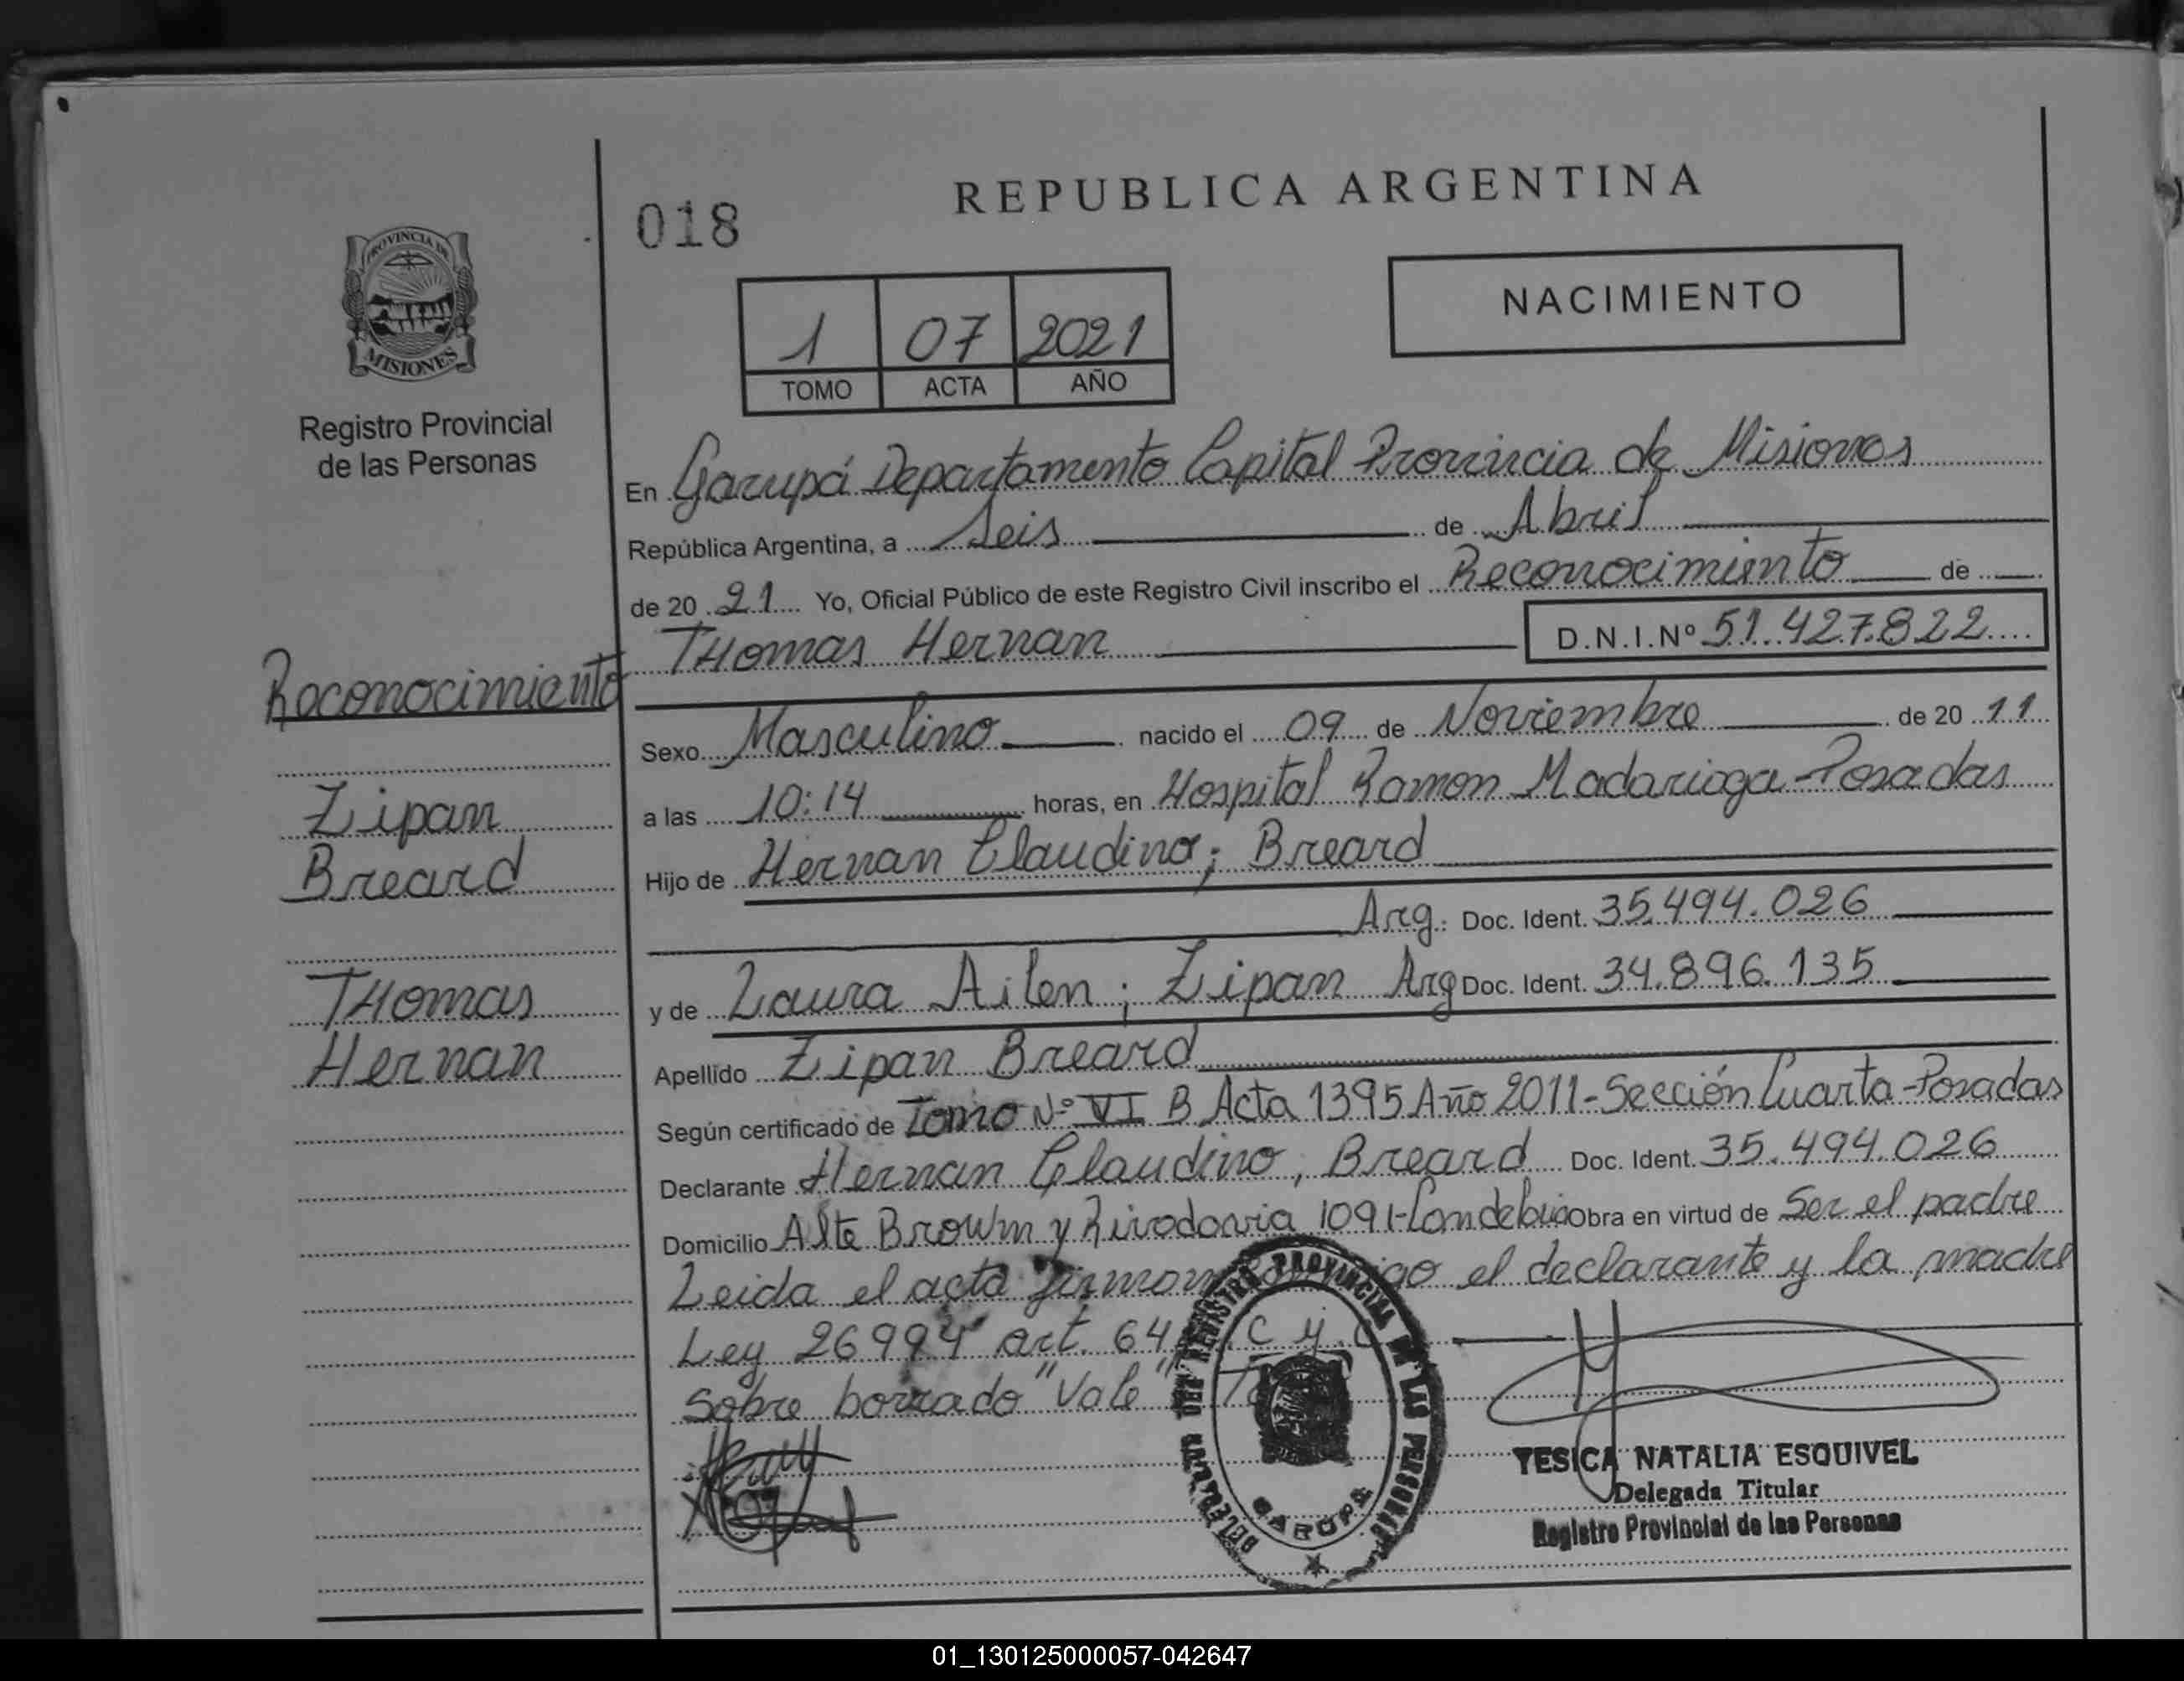 REPUBLICA ARGENTINA
018
NACIMIENTO
PROVINCIA DE
MISIONES
Registro Provincial
de las Personas
1 07 2021
TOMO ACTA AÑO
En Garupá Departamento Capital Provincia de Misiones
República Argentina, a Seis de Abril
de 20 21 Yo, Oficial Público de este Registro Civil inscribo el Reconocimiento de
THomas Hernan D.N.I.Nº 51.427.822
Reconocimiento
Sexo Masculino nacido el 09 de Noviembre de 20 11
a las 10:14 horas, en Hospital Ramon Madariaga-Posadas
Zipan
Breard
Hijo de Hernan Claudino; Breard
Arg. Doc. Ident. 35.494.026
THomas
Hernan
y de Laura Ailen; Zipan Arg Doc. Ident. 34.896.135
Apellido Zipan Breard
Según certificado de Tomo Nº VI B Acta 1395 Año 2011-Sección Cuarta-Posadas
Declarante Hernan Claudino, Breard Doc. Ident. 35.494.026
Domicilio Alte Browm y Rivadavia 1091 Obra en virtud de Ser el padre
Leida el acta el declarante y la madre
Ley 26994 art. 64 C y C
Sobre borrado "Vale"
DELEGADA DEL REGISTRO PROVINCIAL DE LAS PERSONAS
GARUPÁ
YESICA NATALIA ESQUIVEL
Delegada Titular
Registro Provincial de las Personas
01_130125000057-042647